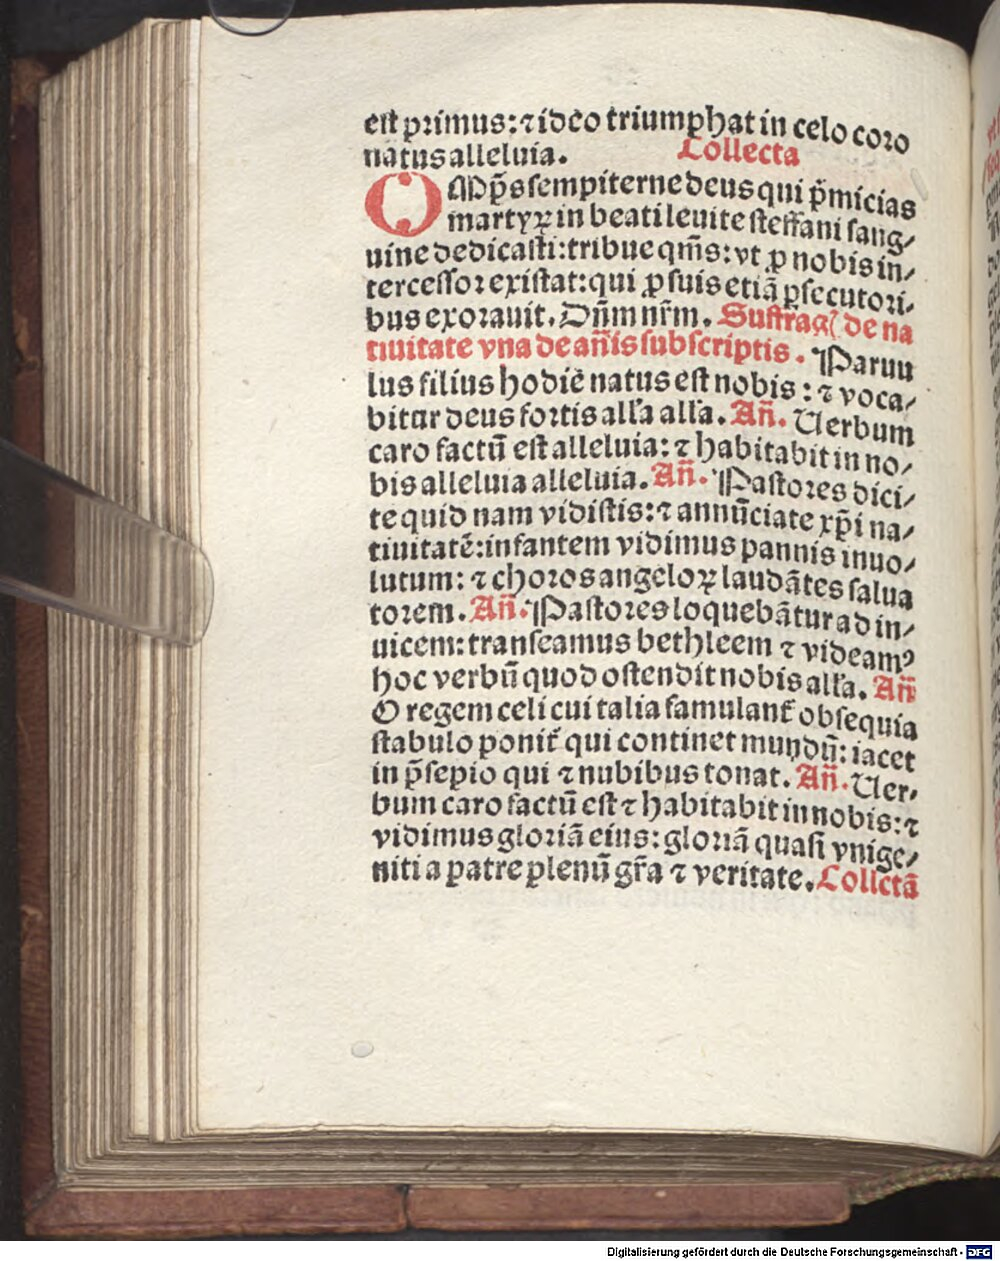 est primus: ⁊ ideo triumphat in celo coro
natus alleluia. Collecta
OMp̄s sempiterne deus qui p̄micias
martyrꝝ in beati leuite steffani sang⸗
uine dedicasti: tribue qm̄s: vt ꝓ nobis in⸗
tercessor existat: qui ꝓ suis etiā ꝑsecutori⸗
bus exorauit. Dn̄m nr̄m. Suffrag̃ de na
tiuitate vna de an̄is subscriptis. Paruu
lus filius hodiē natus est nobis: ⁊ voca⸗
bitur deus fortis all'a all'a. An̄. Uerbum
caro factū est alleluia: ⁊ habitabit in no⸗
bis alleluia alleluia. An̄. Pastores dici⸗
te quid nam vidistis: ⁊ annūciate xp̄i na⸗
tiuitatē: infantem vidimus pannis inuo⸗
lutum: ⁊ choros angeloꝝ laudātes salua
torem. An̄. Pastores loquebātur ad in⸗
uicem: transeamus bethleem ⁊ videamꝰ
hoc verbū quod ostendit nobis all'a. An̄
O regem celi cui talia famulant᷑ obsequia
stabulo ponit᷑ qui continet mundū: iacet
in p̄sepio qui ⁊ nubibus tonat. An̄. Uer⸗
bum caro factū est ⁊ habitabit in nobis: ⁊
vidimus gloriā eius: gloriā quasi vnige⸗
niti a patre plenū gr̄a ⁊ veritate. Collctā
Digitalisierung gefördert durch die Deutsche Forschungsgemeinschaft - DFG